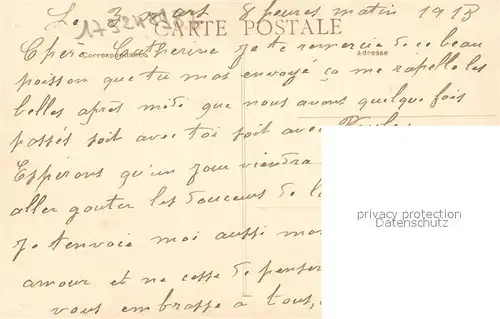 Le 3 mars 8 heures matin 1918
17324818
CARTE POSTALE
Correspondance
Adresse
Chère Catherine je te remercie de ce beau
poisson que tu mas envoyé ça me rapelle les
belles après midi que nous avons quelque fois
passés soit avec toi soit avec
Esppérons qu'un jour viendra
aller gouter les douceurs de la
privacy protection
Datenschutz
Je t'envoie moi aussi mon
amour et ne cesse de penser
vous embrasse à tous,